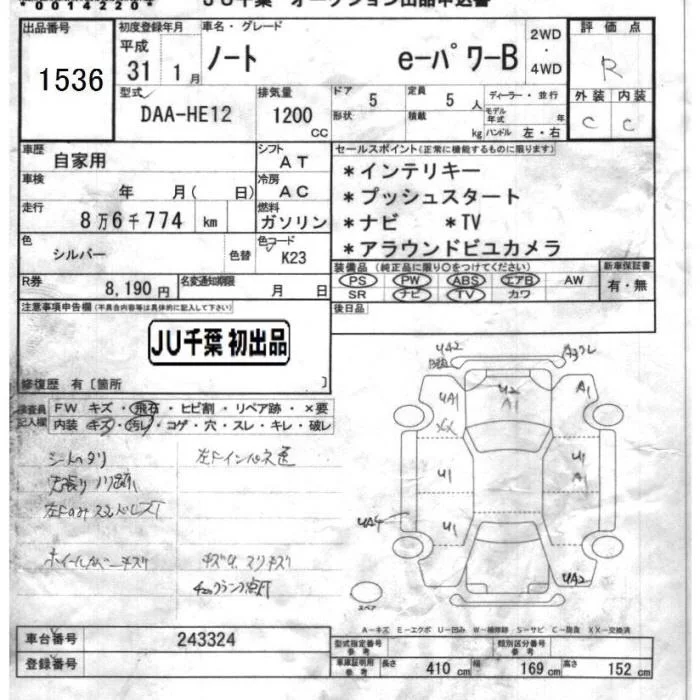 *0014220*
JU千葉 オークション出品申込書
出品番号
1536
初度登録年月
平成
31 1月
車名・グレード
ノート e-パワーB
2WD
・
4WD
評価点
R
外装 内装
C C
型式
DAA-HE12
排気量
1200
CC
ドア 5
形状
定員 5 人
積載 kg
ディーラー・並行
モデル年式 年
ハンドル 左・右
車歴
自家用
シフト
AT
車検
年 月( 日)
冷房
AC
走行
8万6千774 km
燃料
ガソリン
色
シルバー
色替
色コード
K23
R券
8,190円
名変通知期限
月 日
セールスポイント(正常に機能するものに限ります)
*インテリキー
*プッシュスタート
*ナビ *TV
*アラウンドビユカメラ
装備品(純正品に限り○をつけてください)
PS PW ABS エアB AW
SR ナビ TV カワ
新車保証書
有・無
後日品
注意事項申告欄(不具合内容等は具体的に記入して下さい)
JU千葉 初出品
修復歴 有〔箇所 〕
検査員記入欄
FW キズ・飛石・ヒビ割・リペア跡・×要
内装 キズ・汚れ・コゲ・穴・スレ・キレ・破レ
シートヘタリ
ホイールカバーキズ
UA2
A3
UA1
XX
U2
A1
A1
U1
U1
A1
UA4
U1
UA2
スペア
A-キズ E-エクボ U-凹み W-補修跡 S-サビ C-腐食 XX-交換済
車台番号 243324
登録番号
型式指定番号 参考
類別区分番号 参考
車庫証明用 参考
長さ 410 cm 幅 169 cm 高さ 152 cm